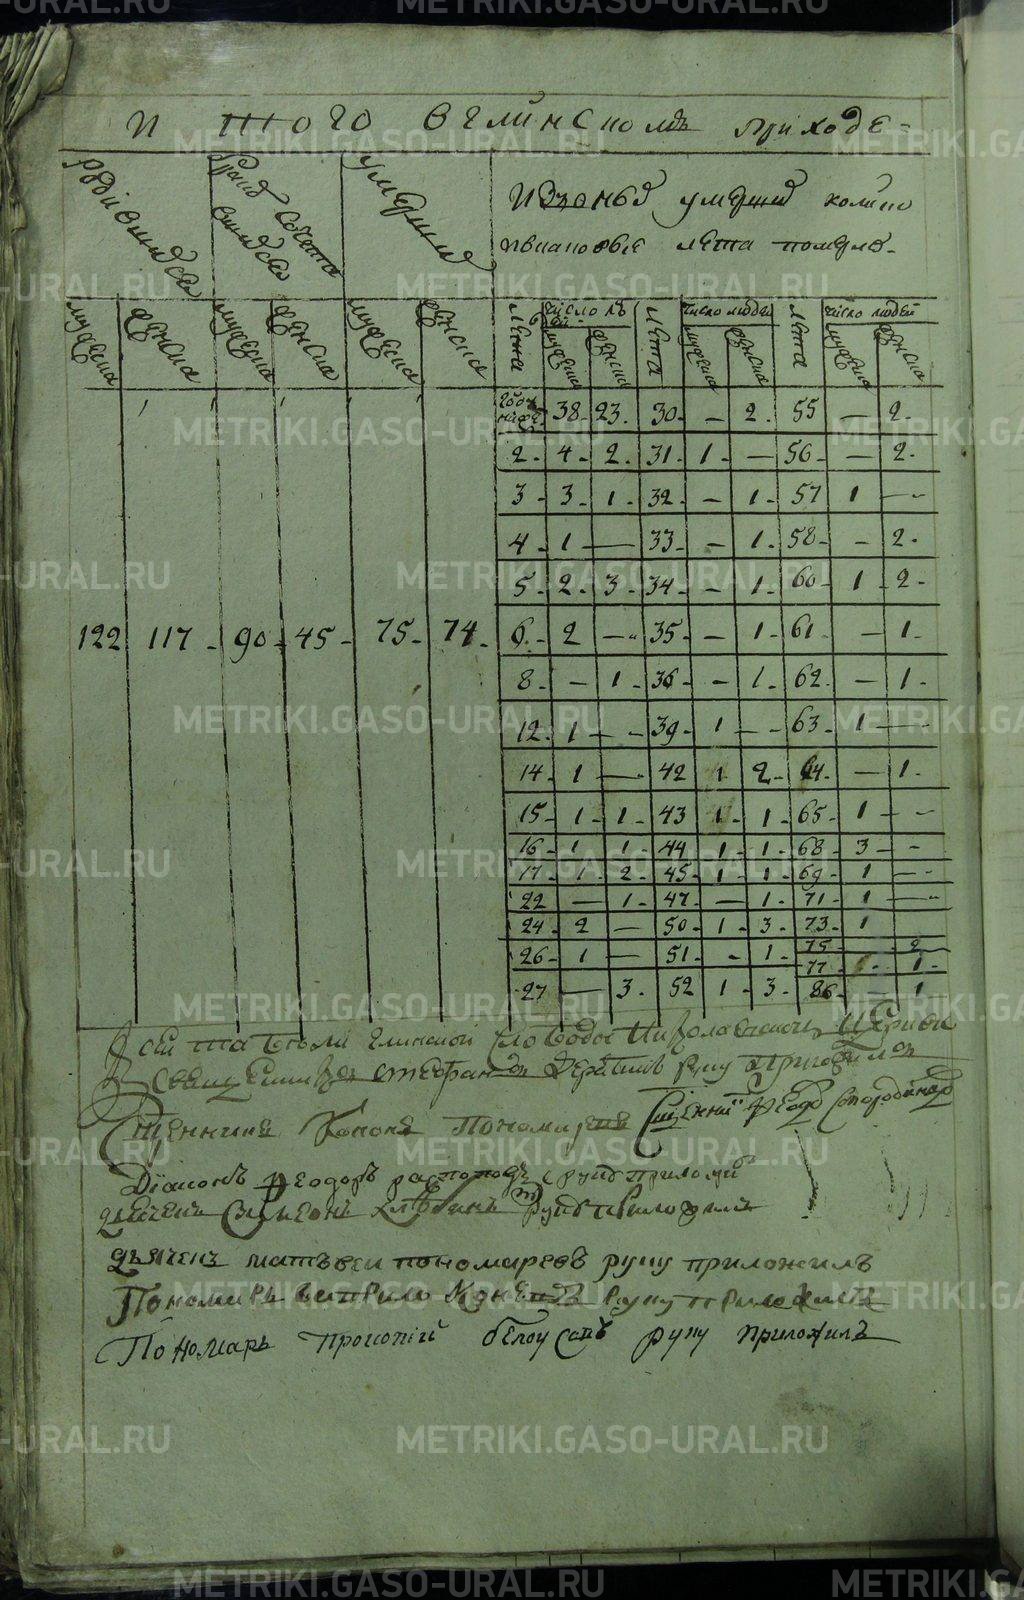 И того в елинском приходе
родившихся
бракосочетавшихся
умерших
Из оных умерших колико
и в каковые лета померло
мужеска женска мужеска женска мужеска женска
лета число людей лета число людей лета число людей
мужеска женска мужеска женска мужеска женска
38 23 30 — 2 55 — 2
2 4 2 31 1 — 56 — 2
3 3 1 32 — 1 57 1 —
4 1 — 33 — 1 58 — 2
5 2 3 34 — 1 60 1 2
122 117 90 45 75 74
6 2 — 35 — 1 61 — 1
8 — 1 36 — 1 62 — 1
12 1 — 39 1 — 63 1 —
14 1 — 42 1 2 64 — 1
15 1 1 43 1 1 65 1 —
16 1 1 44 1 1 68 3 —
17 1 2 45 1 1 69 1 —
22 — 1 47 — 1 71 1 —
24 2 — 50 1 3 73 1
26 1 — 51 - 1 75 — 2
77 - 1
27 — 3 52 1 3 86 — 1
слободы Николаевской церкви
священник Стефан руку приложил
Пономарев Федор
Диаконъ Феодоръ распоповъ руку приложил
дьячекъ Симеонъ руку приложилъ
дьячекъ матъвеи пономаревъ руку приложилъ
Пономарь руку приложилъ
Пономарь прокопiй белоусовъ руку приложилъ
METRIKI.GASO-URAL.RU